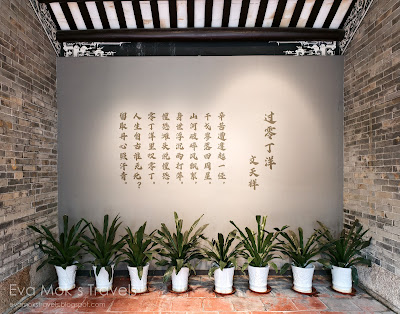 过零丁洋
文天祥
辛苦遭逢起一经，
干戈寥落四周星。
山河破碎风飘絮，
身世浮沉雨打萍。
惶恐滩头说惶恐，
零丁洋里叹零丁。
人生自古谁无死？
留取丹心照汗青。
Eva Mak's Travels
evamakstravels.blogspot.com